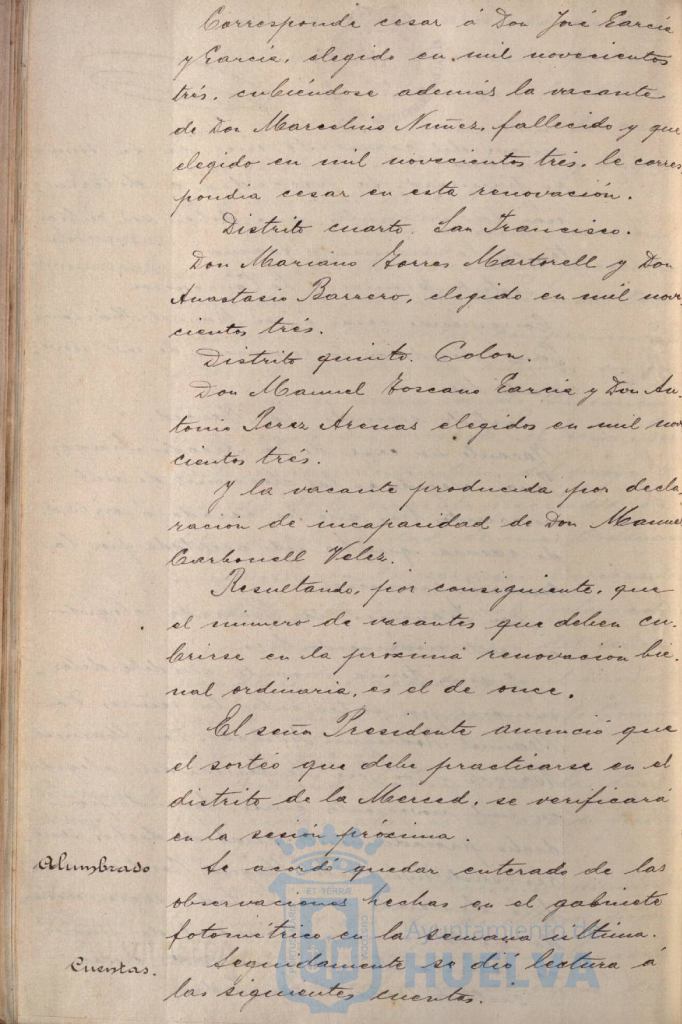 Corresponde cesar á Don José García
y García, elegido en mil novecientos
trés, cubiéndose además la vacante
de Don Marcelino Nuñez, fallecido y que
elegido en mil novecientos trés, le corres
pondia cesar en esta renovación.
Distrito cuarto. San Francisco.
Don Mariano Torres Martorell y Don
Anastasio Barrero, elegido en mil nove
cientos trés.
Distrito quinto. Colon.
Don Manuel Toscano García y Don An-
tonio Perez Arenas elegidos en mil nove
cientos trés.
Y la vacante producida por decla
ración de incapacidad de Don Manuel
Carbonell Velez.
Resultando, por consiguiente, que
el número de vacantes que deben cu-
brirse en la próxima renovación bie-
nal ordinaria, és el de once.
El señor Presidente anunció que
el sorteo que debe practicarse en el
distrito de la Merced, se verificará
en la sesión próxima.
Alumbrado
Se acordó quedar enterado de las
observaciones hechas en el gabinete
fotométrico en la semana ultima.
Cuentas.
Seguidamente se dió lectura á
las siguientes cuentas.
Ayuntamiento de
HUELVA